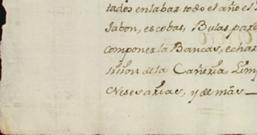 tados enlabar todo el año el
Jabon, escobas, Bulas, para
componer la Bancas, echar
de la Cañeria Limp
Nesesarias, y de mas